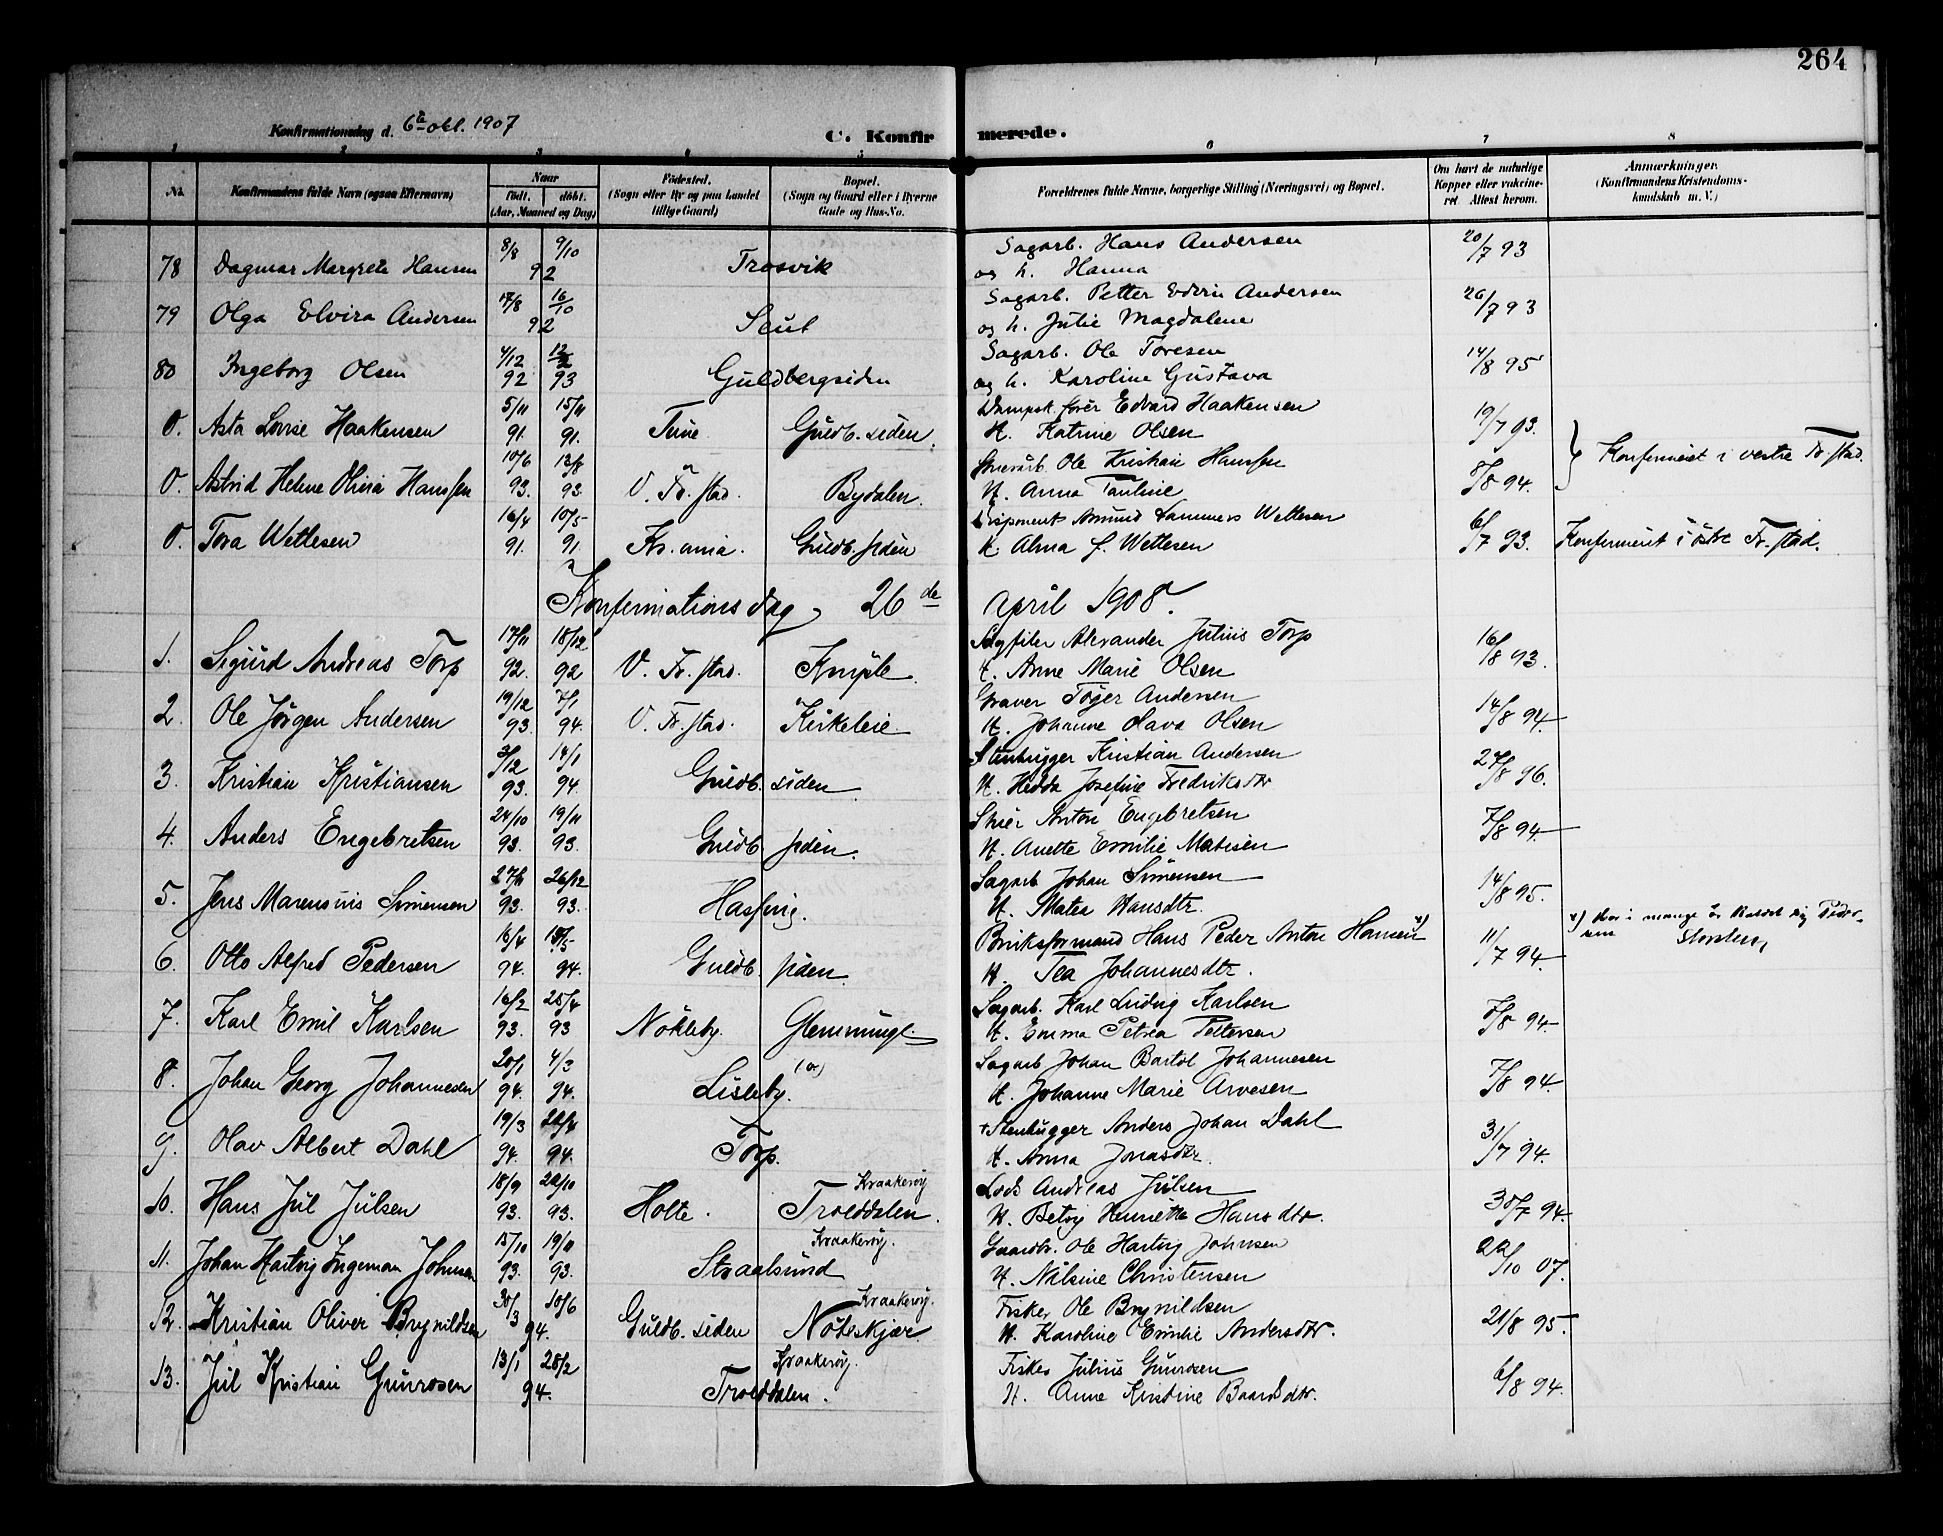 264
Konfirmationsdag d. 6te okt. 1907
C. Konfirmerede.
1 2 3 4 5 6 7 8
No. Konfirmandens fulde Navn (ogsaa Efternavn) Naar født. døbt. (Aar, Maaned og Dag) Fødested. (Sogn eller By og paa Landet tillige Gaard) Bopæl. (Sogn og Gaard eller i Byerne Gade og Hus-No. Forældrenes fulde Navne, borgerlige Stilling (Næringsvei) og Bopæl. Om havt de naturlige Kopper eller vakcineret Attest herom. Anmærkninger. (Konfirmandens Kristendomskundskab m. V.)
8/8 9/10 Sagarb. Hans Andersen 20/7 93
78 Dagmar Margrete Hansen 92 Trosvik og h. Hanna
17/8 16/10 Sagarb. Petter Edvin Andersen 26/7 93
79 Olga Elvira Andersen 92 Seut og h. Julie Magdalene
4/12 12/2 Sagarb. Ole Toresen 14/8 95
80 Ingeborg Olsen 92 93 Guldbergsiden og h. Karoline Gustava
5/11 15/11 Dampsk.fører Edvard Haakensen 19/7 93.
0. Asta Lovise Haakensen 91. 91. Tune Guldb. siden. H. Katrine Olsen
Konfirmeret i vestre Fr.stad.
10/6 13/8 Ole Kristian Hanssen 8/8 94.
0. Astrid Helene Olivia Hanssen 93. 93. V. Fr.stad. Bydalen. H. Anna Pauline
16/4 10/5 Disponent Amund Lammers Wettesen 6/7 93.
0. Tora Wettesen 91. 91. Kr.ania. Guldb.siden H. Alma J. Wettesen Konfirmeret i østre Fr.stad.
Konfirmationsdag 26de April 1908.
17/11 18/12 Sagfiler Alexander Julius Torp 16/8 93.
1. Sigurd Andreas Torp 92. 92 V. Fr.stad. Kniple. H. Anne Marie Olsen
19/12 7/1 Graver Tøger Andersen 14/8 94
2. Ole Jørgen Andersen 93. 94. V. Fr.stad. Kirkeleie H. Johanne Olava Olsen
3/12 14/1 Stenhugger Kristian Andersen 27/8 96.
3. Kristian Kristiansen 93. 94 Guldb. siden. H. Hedda Josefine Fredriksdtr
24/10 19/11 Anton Engebretsen 7/8 94
4. Anders Engebretsen 93. 93. Guldb siden. H. Anette Emilie Matisen
27/11 26/12 Sagarb Johan Simensen 14/8 95.
5. Jens Marensius Simensen 93. 93. Hassing. H. Matea Hansdtr.
16/4 Bruksformand Hans Peder Anton Hansen x) 11/7 94
x) Har i mange år kaldt sig Pedersen
6. Otto Alfred Pedersen 94. 94. Guldb. siden. H. Tea Johannesdtr.
16/2 25/4 Sagarb. Karl Ludvig Karlsen 8/8 94
7. Karl Emil Karlsen 93. 93 Nøkleby. Glemminge H. Emma Petrea Pettersen
20/1 4/3 Sagarb Johan Bartol Johannesen 7/8 94
8. Johan Georg Johannesen 94. 94. Lisleby. H. Johanne Marie Arvesen
19/3 + Stenhugger Anders Johan Dahl 31/7 94.
9. Olav Albert Dahl 94. 94. Torp. H. Anna Jonasdtr.
18/9 22/10 Kraakerøy Lods Andreas Julsen 30/7 94.
10. Hans Jul Julsen 93. 93. Holte. Trolddalen. H. Betsy Henriette Hansdtr.
15/10 19/11 Kraakerøy. Gaardbr. Ole Hartvig Johnsen 22/10 07.
11. Johan Hartvig Ingeman Johnsen 93. 93. Straalsund H. Nilsine Christensen
30/3 10/6 Kraakerøy. Fisker Ole Brynildsen 21/8 95.
12. Kristian Oliver Brynildsen 94. Guldb. siden Nøteskjær. H. Karoline Emilie Andersdtr.
13/1 28/2 Kraakerøy. Fisker Julius Gunrosen 6/8 94.
13. Jul Kristian Gunrosen 94. Trolddalen. H. Anne Kristine Baardsdtr.